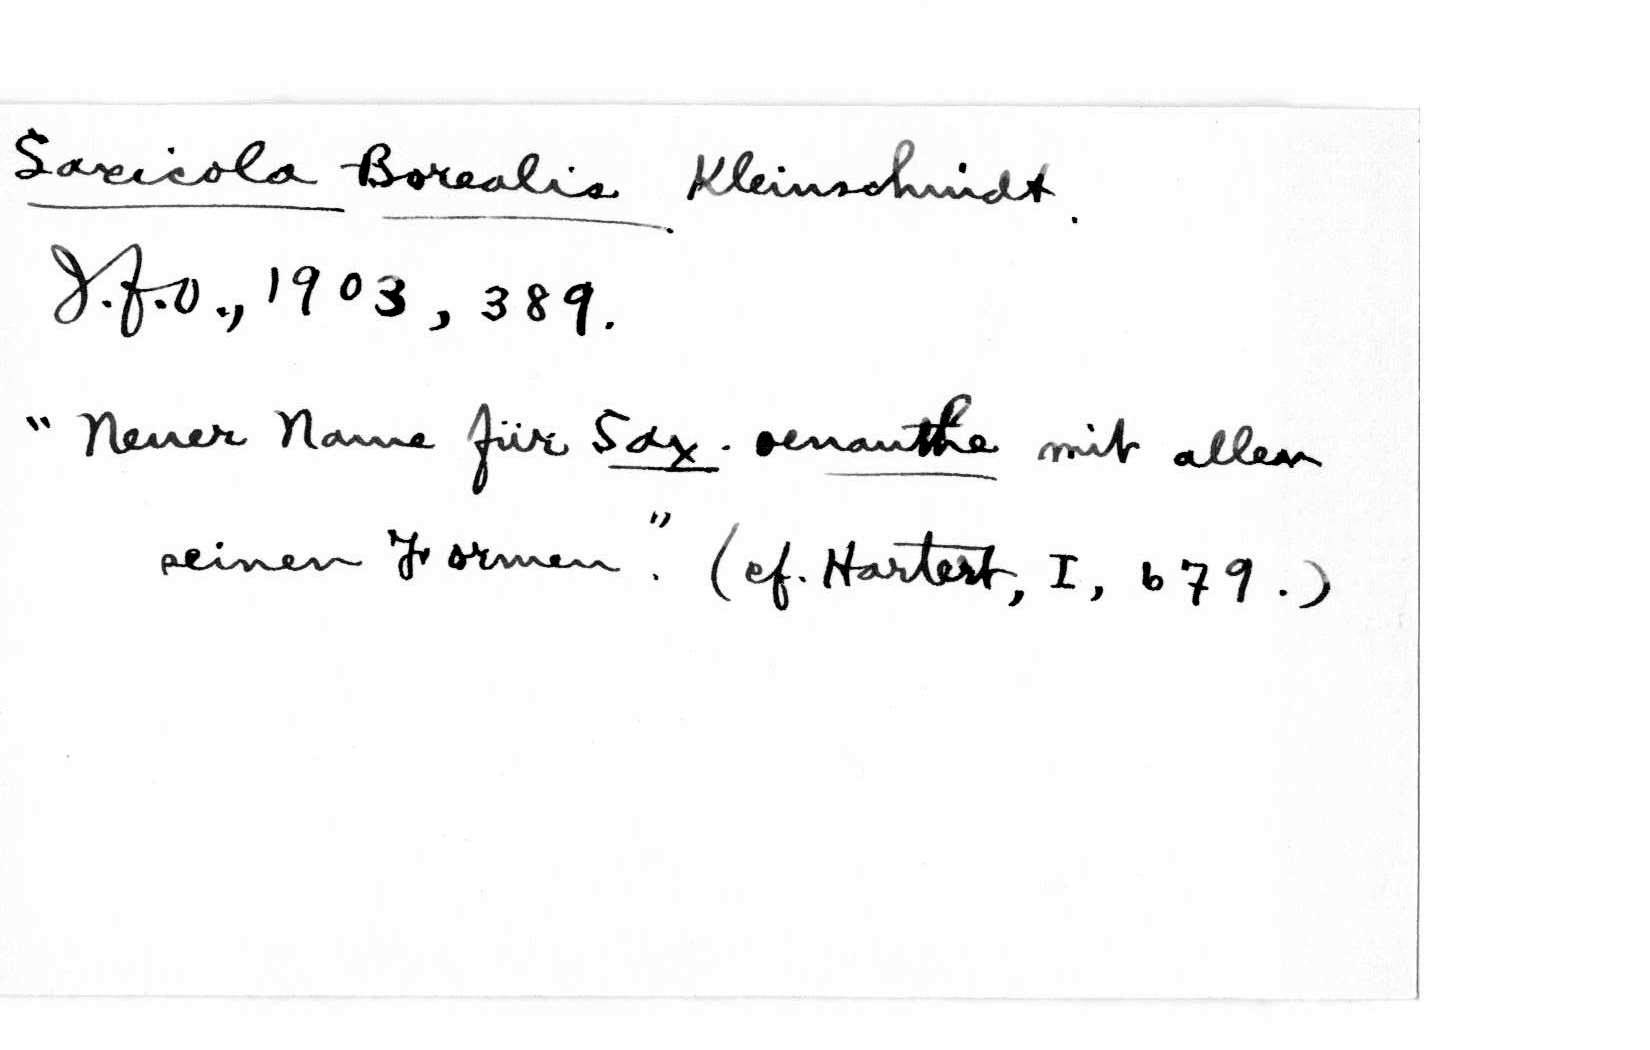 Saxicola Borealis Kleinschmidt.
J.f.O., 1903, 389.
"Neuer Name für Sax. oenanthe mit allen
seinen Formen". (cf. Hartert, I, 679.)